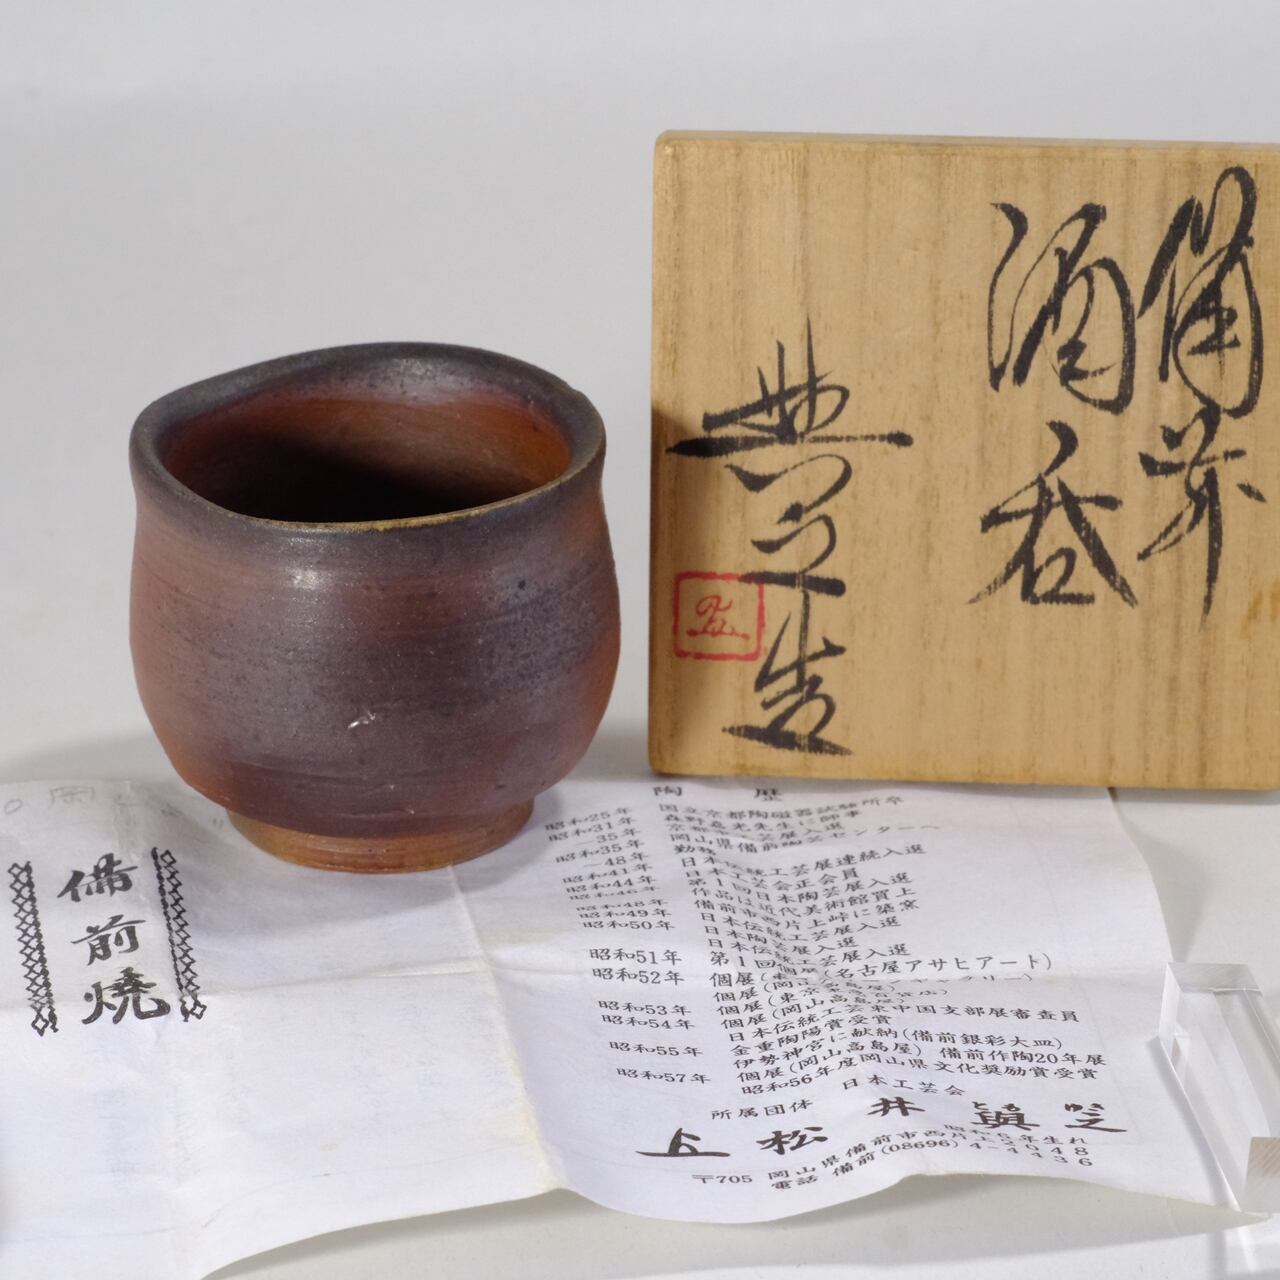 備前
酒呑
興之造
備前焼
陶歴
昭和25年 国立京都陶磁器試験所卒
昭和31年 森野嘉光先生に師事
～35年 京都市工芸展入選
昭和35年 岡山県備前陶芸センターへ
～48年 勤務
昭和41年 日本伝統工芸展連続入選
昭和44年 日本工芸会正会員
昭和46年 第1回日本陶芸展入選
作品は近代美術館買上
昭和48年 備前市西片上峠に築窯
昭和49年 日本伝統工芸展入選
昭和50年 日本陶芸展入選
日本伝統工芸展入選
昭和51年 第1回個展
昭和52年 個展(名古屋アサヒアート)
個展
昭和53年 個展(岡山高島屋)
昭和54年 日本伝統工芸東中国支部展審査員
金重陶陽賞受賞
昭和55年 伊勢神宮に献納(備前銀彩大皿)
個展(岡山高島屋) 備前作陶20年展
昭和57年 昭和56年度岡山県文化奨励賞受賞
所属団体 日本工芸会
松井與之
昭和6年生れ
〒705 岡山県備前市西片上2048
電話 備前(08696)4-4436